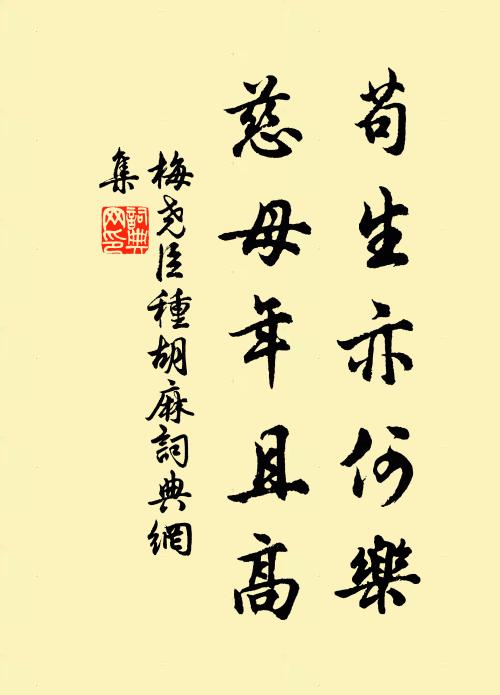 苟生亦何樂
慈母年且高
梅堯臣種胡麻詞典網
集
詞典
网印